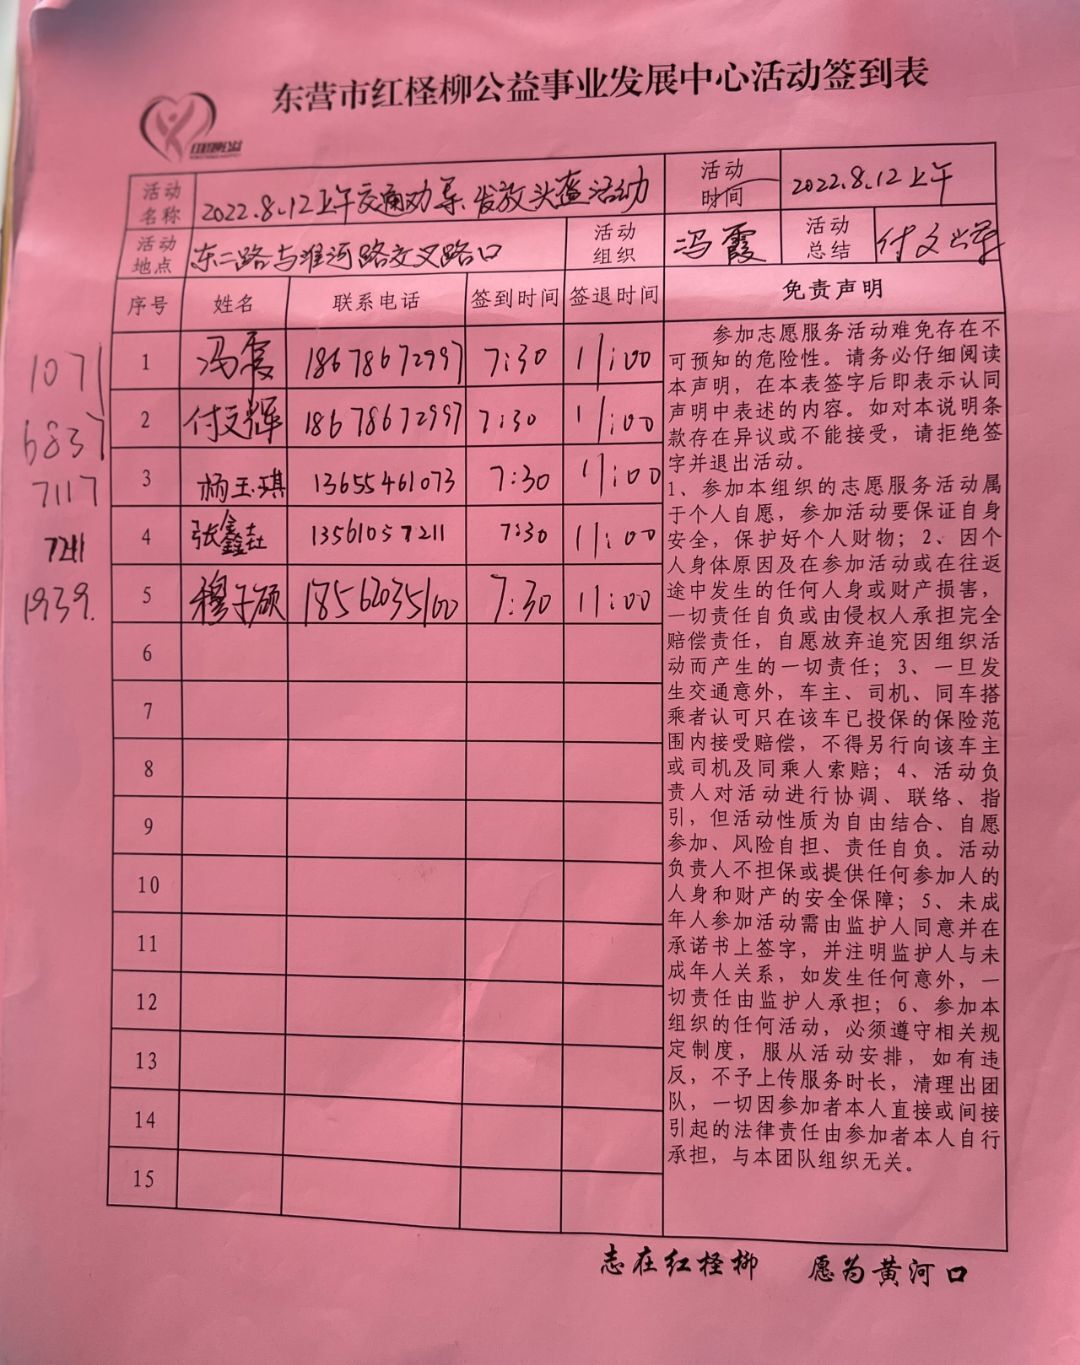 东营市红柽柳公益事业发展中心活动签到表
红柽柳公益
活动名称 2022.8.12上午交通劝导、发放头盔活动 活动时间 2022.8.12上午
活动地点 东二路与淮河路交叉路口 活动组织 冯霞 活动总结 付文辉
序号 姓名 联系电话 签到时间 签退时间 免责声明
1071 1 冯霞 18678672997 7:30 11:00
6837 2 付文辉 18678672997 7:30 11:00
7117 3 杨玉琪 13655461073 7:30 11:00
7211 4 张鑫垚 13561057211 7:30 11:00
1939. 5 穆子硕 18562035100 7:30 11:00
6
7
8
9
10
11
12
13
14
15
参加志愿服务活动难免存在不
可预知的危险性。请务必仔细阅读
本声明，在本表签字后即表示认同
声明中表述的内容。如对本说明条
款存在异议或不能接受，请拒绝签
字并退出活动。
1、参加本组织的志愿服务活动属
于个人自愿，参加活动要保证自身
安全，保护好个人财物；2、因个
人身体原因及在参加活动或在往返
途中发生的任何人身或财产损害，
一切责任自负或由侵权人承担完全
赔偿责任，自愿放弃追究因组织活
动而产生的一切责任；3、一旦发
生交通意外，车主、司机、同车搭
乘者认可只在该车已投保的保险范
围内接受赔偿，不得另行向该车主
或司机及同乘人索赔；4、活动负
责人对活动进行协调、联络、指
引，但活动性质为自由结合、自愿
参加、风险自担、责任自负。活动
负责人不担保或提供任何参加人的
人身和财产的安全保障；5、未成
年人参加活动需由监护人同意并在
承诺书上签字，并注明监护人与未
成年人关系，如发生任何意外，一
切责任由监护人承担；6、参加本
组织的任何活动，必须遵守相关规
定制度，服从活动安排，如有违
反，不予上传服务时长，清理出团
队，一切因参加者本人直接或间接
引起的法律责任由参加者本人自行
承担，与本团队组织无关。
志在红柽柳 愿为黄河口